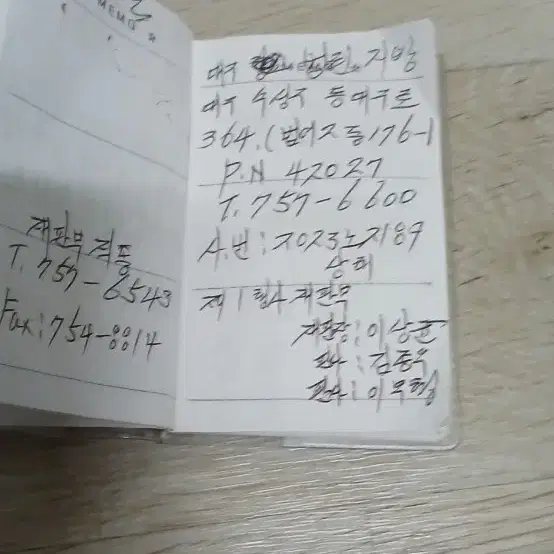 MEMO
재판부 직통
T. 757-6543
Fax : 754-8814
대구 지방
대구 수성구 동대구로
364. (범어2동 176-1
P.N 42027
T. 757-6600
사.번 : 2023노3189
상해
제1형사재판부
재판장 : 이상균
판사 : 김동욱
판사 :